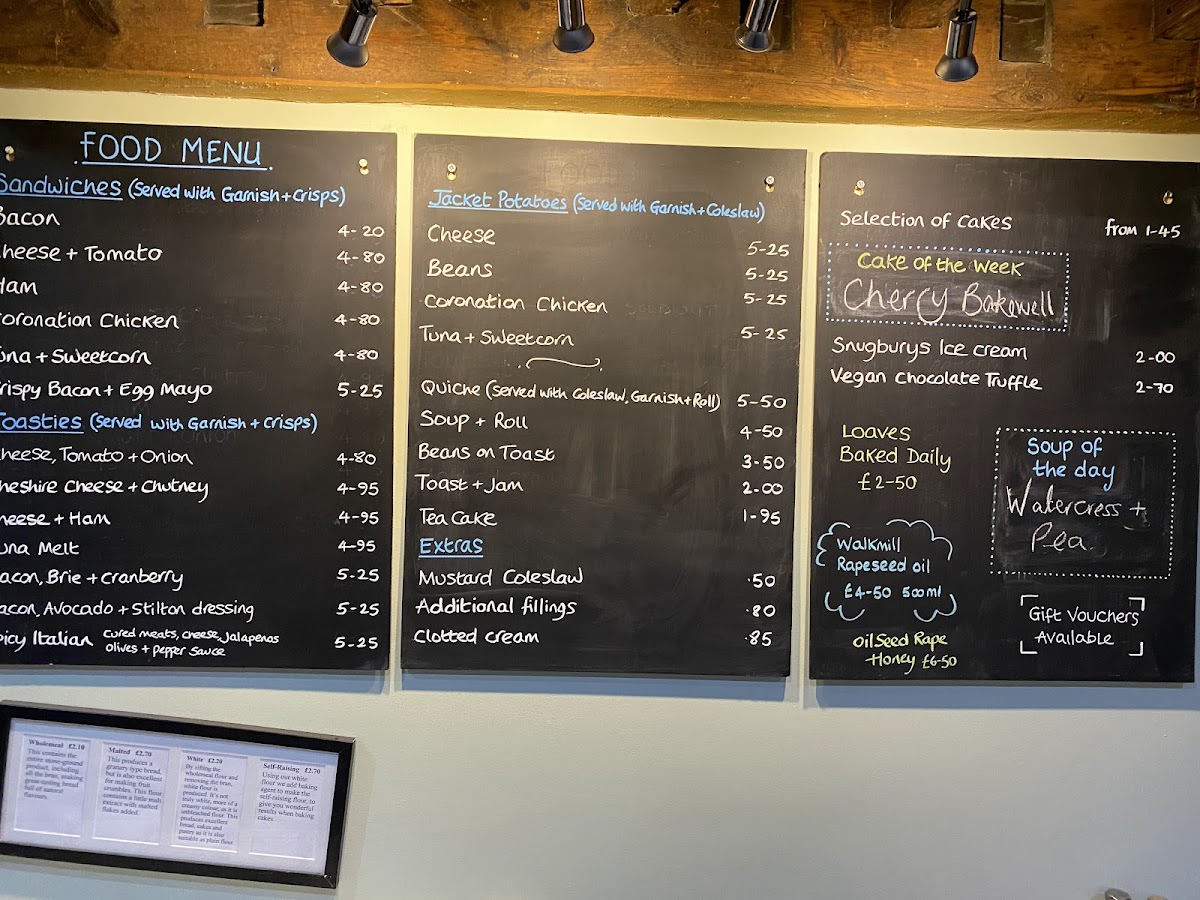 FOOD MENU
Sandwiches (Served with Garnish + Crisps)
Bacon 4-20
Cheese + Tomato 4-80
Ham 4-80
Coronation Chicken 4-80
Tuna + Sweetcorn 4-80
Crispy Bacon + Egg Mayo 5-25
Toasties (Served with Garnish + Crisps)
Cheese, Tomato + Onion 4-80
Cheshire Cheese + Chutney 4-95
Cheese + Ham 4-95
Tuna Melt 4-95
Bacon, Brie + Cranberry 5-25
Bacon, Avocado + Stilton dressing 5-25
Spicy Italian cured meats, cheese, Jalapenas
olives + pepper sauce 5-25
Jacket Potatoes (Served with Garnish + Coleslaw)
Cheese 5-25
Beans 5-25
Coronation Chicken 5-25
Tuna + Sweetcorn 5-25
Quiche (Served with Coleslaw, Garnish + Roll) 5-50
Soup + Roll 4-50
Beans on Toast 3-50
Toast + Jam 2-00
Tea Cake 1-95
Extras
Mustard Coleslaw .50
Additional fillings .80
Clotted cream .85
Selection of Cakes from 1-45
Cake of the Week
Cherry Bakewell
Snugburys Ice cream 2-00
Vegan Chocolate Truffle 2-70
Loaves
Baked Daily
£2-50
Soup of
the day
Watercress +
Pea
Walkmill
Rapeseed oil
£4-50 500ml
Oilseed Rape
Honey £6-50
Gift Vouchers
Available
Wholemeal £2.10
This contains the
entire stone-ground
product, including
all the bran, making
great-tasting bread
full of natural
flavours.
Malted £2.70
This produces a
granary type bread,
but is also excellent
for making fruit
crumbles. This flour
contains a little malt
extract with malted
flakes added.
White £2.20
By sifting the
wholemeal flour and
removing the bran,
white flour is
produced. It's not
truly white, more of a
creamy colour, as it is
unbleached flour. This
produces excellent
bread, cakes and
pastry as it is also
suitable as plain flour.
Self-Raising £2.70
Using our white
flour we add baking
agent to make the
self-raising flour, to
give you wonderful
results when baking
cakes